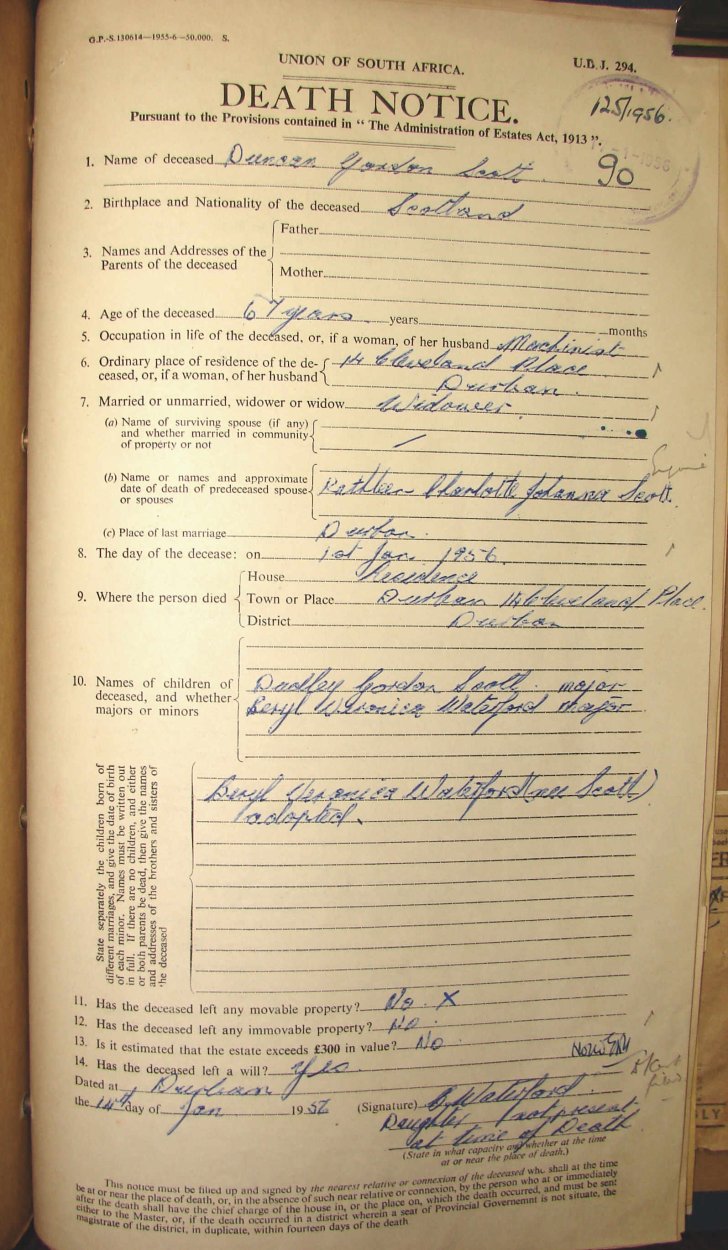 G.P.-S.130614—1955-6—50,000. S.
UNION OF SOUTH AFRICA.
U.D.J. 294.
DEATH NOTICE.
125/1956.
Pursuant to the Provisions contained in “ The Administration of Estates Act, 1913 ”.
1. Name of deceased Duncan Gordon Scott
90
2. Birthplace and Nationality of the deceased Scotland
3. Names and Addresses of the Parents of the deceased
Father
Mother
4. Age of the deceased 67 years years months
5. Occupation in life of the deceased, or, if a woman, of her husband Machinist
6. Ordinary place of residence of the de- 14 Cleveland Place
ceased, or, if a woman, of her husband Durban.
7. Married or unmarried, widower or widow Widower.
(a) Name of surviving spouse (if any)
and whether married in community
of property or not —
(b) Name or names and approximate
date of death of predeceased spouse Kathleen Charlotte Johanna Scott.
or spouses
(c) Place of last marriage Durban.
8. The day of the decease: on 1st Jan 1956.
9. Where the person died
House Residence
Town or Place Durban 14 Cleveland Place.
District Durban
10. Names of children of
deceased, and whether
majors or minors
Dudley Gordon Scott. major
Beryl Veronica Waterford major
State separately the children born of
different marriages, and give the date of birth
of each minor. Names must be written out
in full. If there are no children, and either
or both parents be dead, then give the names
and addresses of the brothers and sisters of
the deceased
Beryl Veronica Waterford (nee Scott)
adopted.
11. Has the deceased left any movable property? No. X
12. Has the deceased left any immovable property? No.
13. Is it estimated that the estate exceeds £300 in value? No
14. Has the deceased left a will? Yes.
Dated at Durban
the 14th day of Jan 1956
(Signature) B Waterford.
Daughter (not present
at time of Death
(State in what capacity and whether at the time
or at or near the place of death.)
This notice must be filled up and signed by the nearest relative or connexion of the deceased who shall at the time
be at or near the place of death, or, in the absence of such near relative or connexion, by the person who at or immediately
after the death shall have the chief charge of the house in, or the place on, which the death occurred, and must be sent
either to the Master, or, if the death occurred in a district wherein a seat of Provincial Governemnt is not situate, the
magistrate of the district, in duplicate, within fourteen days of the death